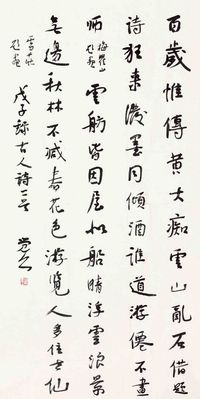 百歲惟傳黃大癡雲山亂石借題
詩狂來潑墨同傾酒誰道游僊不畫
師 梅瞿山題畫 雲舫皆因屋似船晴浮雲浪景
無邊秋林不減春花色游覽人多住世仙
雪莊題畫 戊子錄古人詩二首